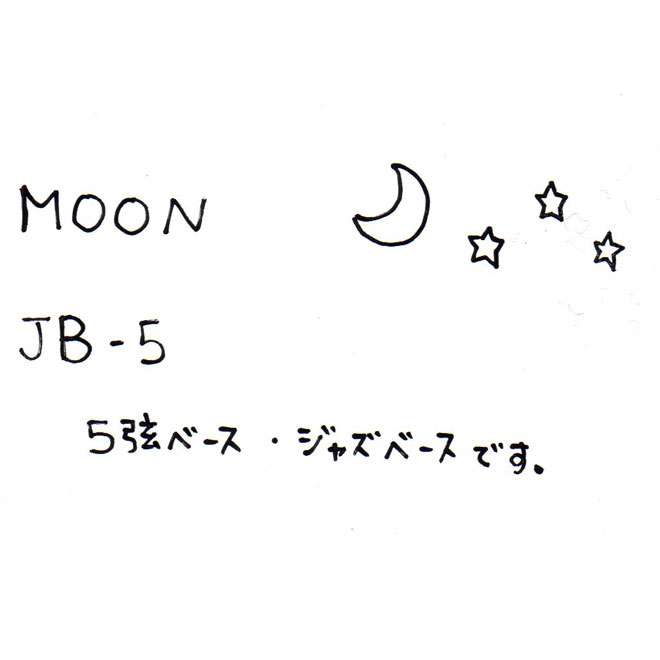 MOON
JB-5
5弦ベース・ジャズベースです。